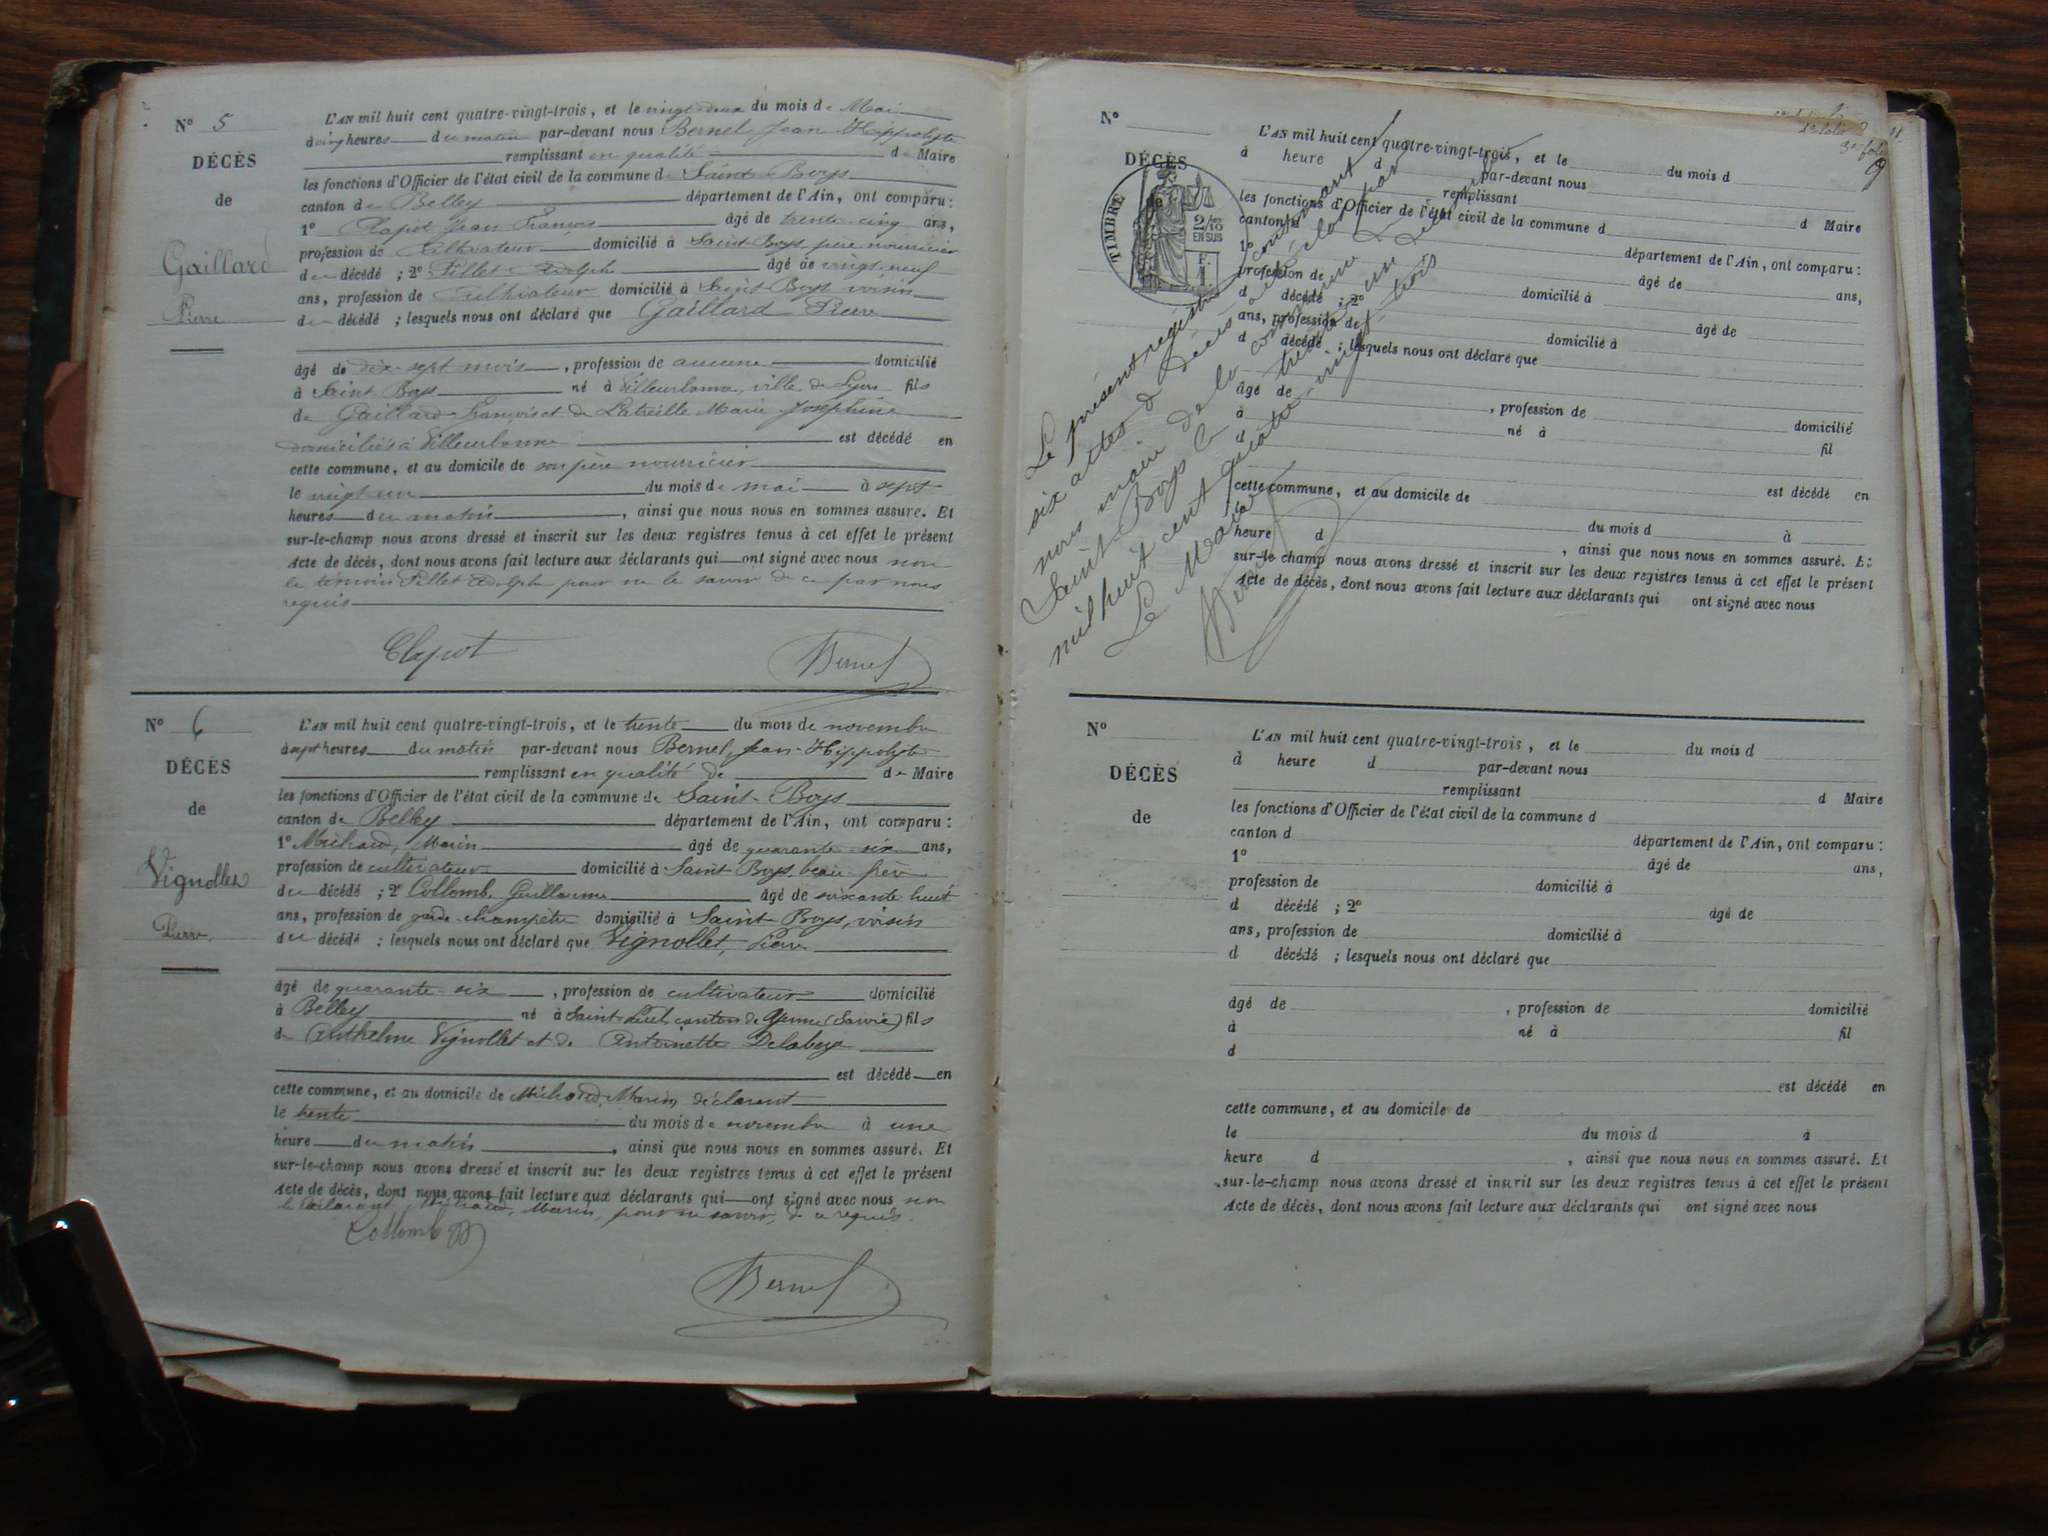 N° 5
DÉCÈS
de
Gaillard
Pierre
L'AN mil huit cent quatre-vingt-trois, et le vingt-deux du mois de Mai
à cinq heures du matin par-devant nous Bernel Jean Hippolyte
remplissant en qualité de Maire
les fonctions d'Officier de l'état civil de la commune de Saint-Boys
canton de Belley département de l'Ain, ont comparu :
1° Clapot Jean François âgé de trente-cinq ans,
profession de Cultivateur domicilié à Saint-Boys, père nourricier
du décédé ; 2° Pillet Adolphe âgé de vingt-neuf
ans, profession de Cultivateur domicilié à Saint Boys voisin
du décédé ; lesquels nous ont déclaré que Gaillard Pierre
âgé de dix-sept mois, profession de aucune domicilié
à Saint Boys né à Villeurbanne, ville de Lyon fils
de Gaillard François et de Latreille Marie Joséphine
domiciliés à Villeurbanne est décédé en
cette commune, et au domicile de son père nourricier
le vingt un du mois de mai à sept
heures du matin, ainsi que nous nous en sommes assuré. Et
sur-le-champ nous avons dressé et inscrit sur les deux registres tenus à cet effet le présent
Acte de décès, dont nous avons fait lecture aux déclarants qui ont signé avec nous non
le témoin Pillet Adolphe pour ne le savoir de ce par nous
requis
Clapot Bernel
N° 6
DÉCÈS
de
Vignollet
Pierre
L'AN mil huit cent quatre-vingt-trois, et le trente du mois de novembre
à sept heures du matin par-devant nous Bernel, Jean-Hippolyte
remplissant en qualité de de Maire
les fonctions d'Officier de l'état civil de la commune de Saint-Boys
canton de Belley département de l'Ain, ont comparu :
1° Michaud, Marin âgé de quarante-six ans,
profession de cultivateur domicilié à Saint Boys, beau-frère
du décédé ; 2° Collomb, Guillaume âgé de soixante huit
ans, profession de garde-champêtre domicilié à Saint-Boys, voisin
du décédé ; lesquels nous ont déclaré que Vignollet, Pierre
âgé de quarante-six, profession de cultivateur domicilié
à Belley né à Saint canton de Yenne (Savoie) fils
de Anthelme Vignollet et de Antoinette
est décédé en
cette commune, et au domicile de Michaud, Marin, déclarant
le trente du mois de novembre à une
heure du matin, ainsi que nous nous en sommes assuré. Et
sur-le-champ nous avons dressé et inscrit sur les deux registres tenus à cet effet le présent
Acte de décès, dont nous avons fait lecture aux déclarants qui ont signé avec nous non
le déclarant Michaud, Marin, pour ne savoir, de ce requis.
Collomb
Bernel
3e folio
9
N°
DÉCÈS
TIMBRE
2/10
EN SUS
F.
1
L'AN mil huit cent quatre-vingt-trois, et le du mois d
à heure d par-devant nous
remplissant d Maire
les fonctions d'Officier de l'état civil de la commune d
canton d département de l'Ain, ont comparu :
1° âgé de ans,
profession de domicilié à
d décédé ; 2° âgé de
ans, profession de domicilié à
d décédé ; lesquels nous ont déclaré que
âgé de , profession de domicilié
à né à fil
d
est décédé en
cette commune, et au domicile de
le du mois d à
heure d , ainsi que nous nous en sommes assuré. Et
sur-le-champ nous avons dressé et inscrit sur les deux registres tenus à cet effet le présent
Acte de décès, dont nous avons fait lecture aux déclarants qui ont signé avec nous
Le présent registre contenant
six actes de décès a été clos par
nous maire de la commune de
Saint-Boys le trente un décembre
mil huit cent quatre-vingt-trois
Le Maire
Bernel
N°
DÉCÈS
de
L'AN mil huit cent quatre-vingt-trois, et le du mois d
à heure d par-devant nous
remplissant d Maire
les fonctions d'Officier de l'état civil de la commune d
canton d département de l'Ain, ont comparu :
1° âgé de ans,
profession de domicilié à
d décédé ; 2° âgé de
ans, profession de domicilié à
d décédé ; lesquels nous ont déclaré que
âgé de , profession de domicilié
à né à fil
d
est décédé en
cette commune, et au domicile de
le du mois d à
heure d , ainsi que nous nous en sommes assuré. Et
sur-le-champ nous avons dressé et inscrit sur les deux registres tenus à cet effet le présent
Acte de décès, dont nous avons fait lecture aux déclarants qui ont signé avec nous